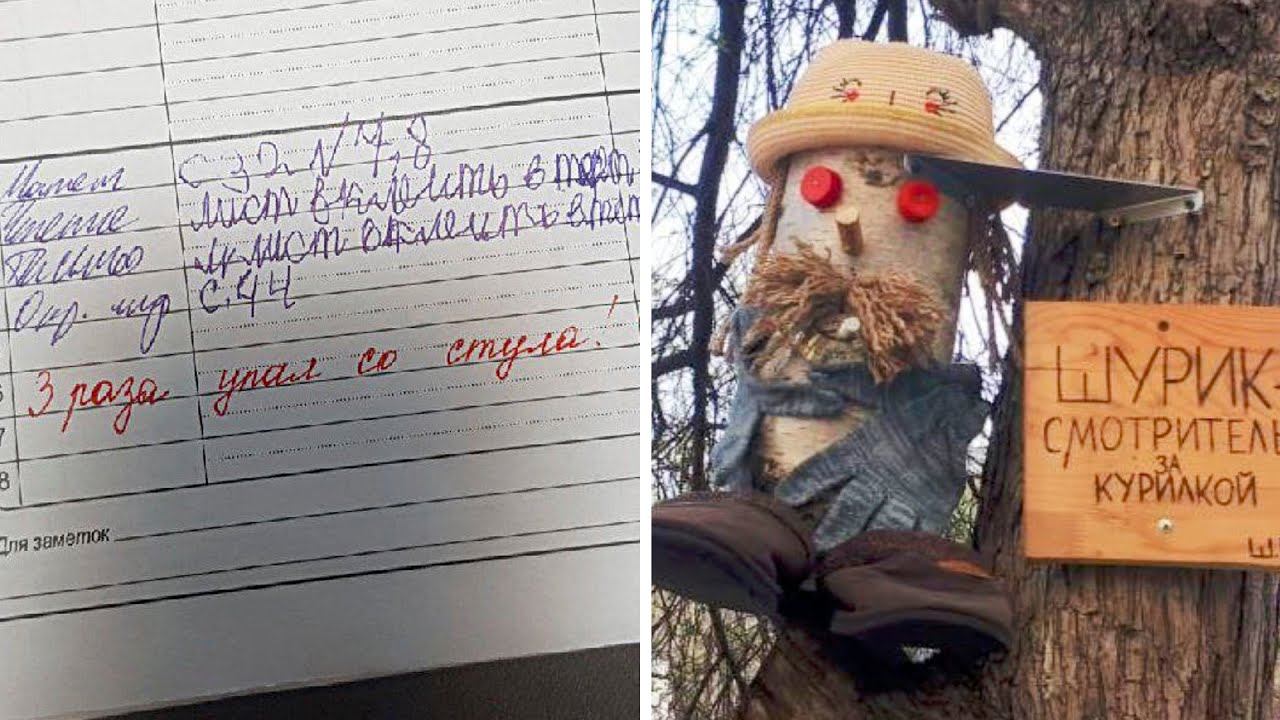 Матем с 32 N 7,8
Чтение лист вклеить в тетр.
Письмо лист вклеить в тет
Окр. мир с.44
3 раза упал со стула!
6
7
8
Для заметок
ШУРИК-
СМОТРИТЕЛЬ
ЗА
КУРИЛКОЙ